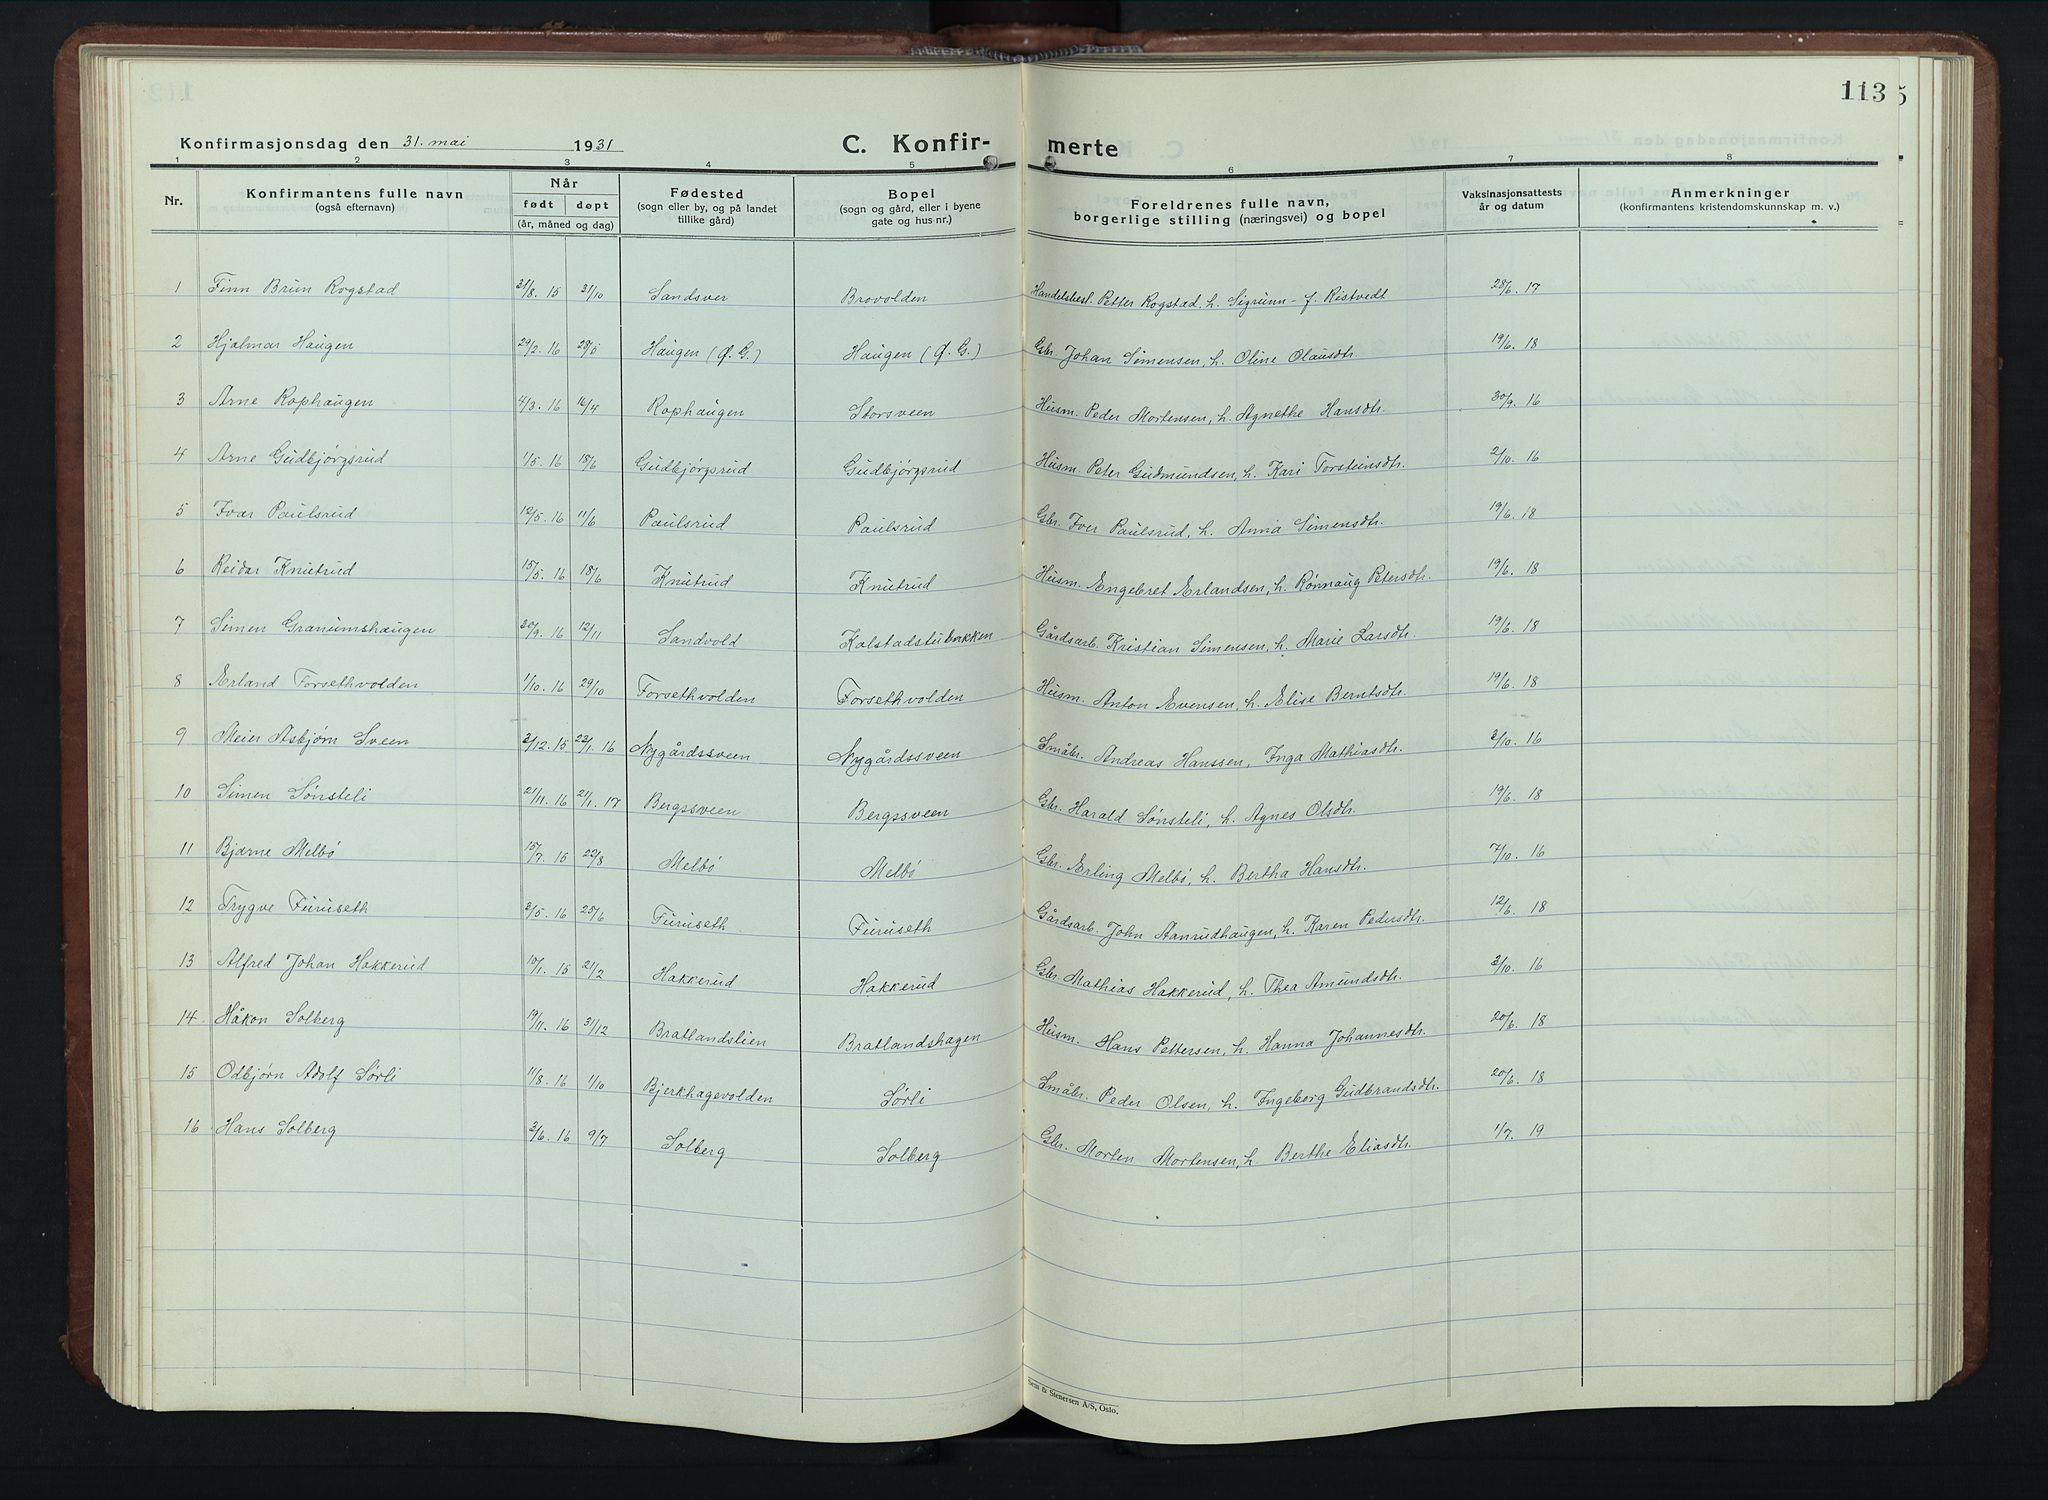 113
Konfirmasjonsdag den 31. mai 1931 C. Konfir- merte
1 2 3 4 5 6 7 8
Nr. Konfirmantens fulle navn (også efternavn) Når født døpt (år, måned og dag) Fødested (sogn eller by, og på landet tillike gård) Bopel (sogn og gård, eller i byene gate og hus nr.) Foreldrenes fulle navn, borgerlige stilling (næringsvei) og bopel Vaksinasjonsattests år og datum Anmerkninger (konfirmantens kristendomskunnskap m. v.)
1 Finn Brun Rogstad 31/8. 15 31/10 Sandsver Brovolden Handelsbest. Petter Rogstad, h. Sigrunn - f. Ristvedt 28/6. 17
2 Hjalmar Haugen 29/2. 16 28/5 Haugen (Ø. G.) Haugen (Ø. G.) Gbr. Johan Simensen, h. Oline Olausdtr. 19/6. 18
3 Arne Rophaugen 4/3. 16 16/4 Rophaugen Storsveen Husm. Peder Mortensen, h. Agnethe Hansdtr. 30/9. 16
4 Arne Gudbjørgsrud 1/5. 16 18/6 Gudbjørgsrud Gudbjørgsrud Husm. Peter Gudmundsen, h. Kari Torsteinsdtr. 2/10. 16
5 Ivar Paulsrud 12/5. 16 11/6 Paulsrud Paulsrud Gbr. Iver Paulsrud, h. Anna Simensdtr. 19/6. 18
6 Reidar Knutrud 15/5. 16 18/6 Knutrud Knutrud Husm. Engebret Erlandsen, h. Rønnaug Petersdtr. 19/6. 18
7 Simen Granumshaugen 20/9. 16 12/11 Sandvold Kalstadstubakken Gårdsarb. Kristian Simensen, h. Marie Larsdtr. 19/6. 18
8 Erland Forsethvolden 1/10. 16 29/10 Forsethvolden Forsethvolden Husm. Anton Evensen, h. Elise Berntsdtr. 19/6. 18
9 Meier Asbjørn Sveen 3/12. 15 23/1. 16 Nygårdssveen Nygårdssveen Småbr. Andreas Hanssen, Inga Mathiasdtr. 3/10. 16
10 Simen Sønsteli 21/11. 16 21/1. 17 Bergssveen Bergssveen Gbr. Harald Sønsteli, h. Agnes Olsdtr. 19/6. 18
11 Bjarne Melbø 15/7. 15 22/8 Melbø Melbø Gbr. Erling Melbø, h. Bertha Hansdtr. 7/10. 16
12 Trygve Furuseth 2/5. 16 25/6 Furuseth Furuseth Gårdsarb. John Aanrudhaugen, h. Karen Pedersdtr. 12/6. 18
13 Alfred Johan Hakkerud 10/1. 15 21/2 Hakkerud Hakkerud Gbr. Mathias Hakkerud, h. Thea Amundsdtr. 3/10. 16
14 Håkon Solberg 19/11. 16 31/12 Bratlandslien Bratlandshagen Husm. Hans Pettersen, h. Hanna Johannesdtr. 20/6. 18
15 Odbjørn Adolf Sørli 11/8. 16 1/10 Bjerkhagevolden Sørli Småbr. Peder Olsen, h. Ingeborg Gudbrandsdtr. 20/6. 18
16 Hans Solberg 3/6. 16 9/7 Solberg Solberg Gbr. Morten Mortensen, h Berthe Eliasdtr. 1/7. 19
Sem & Stenersen A/S, Oslo.